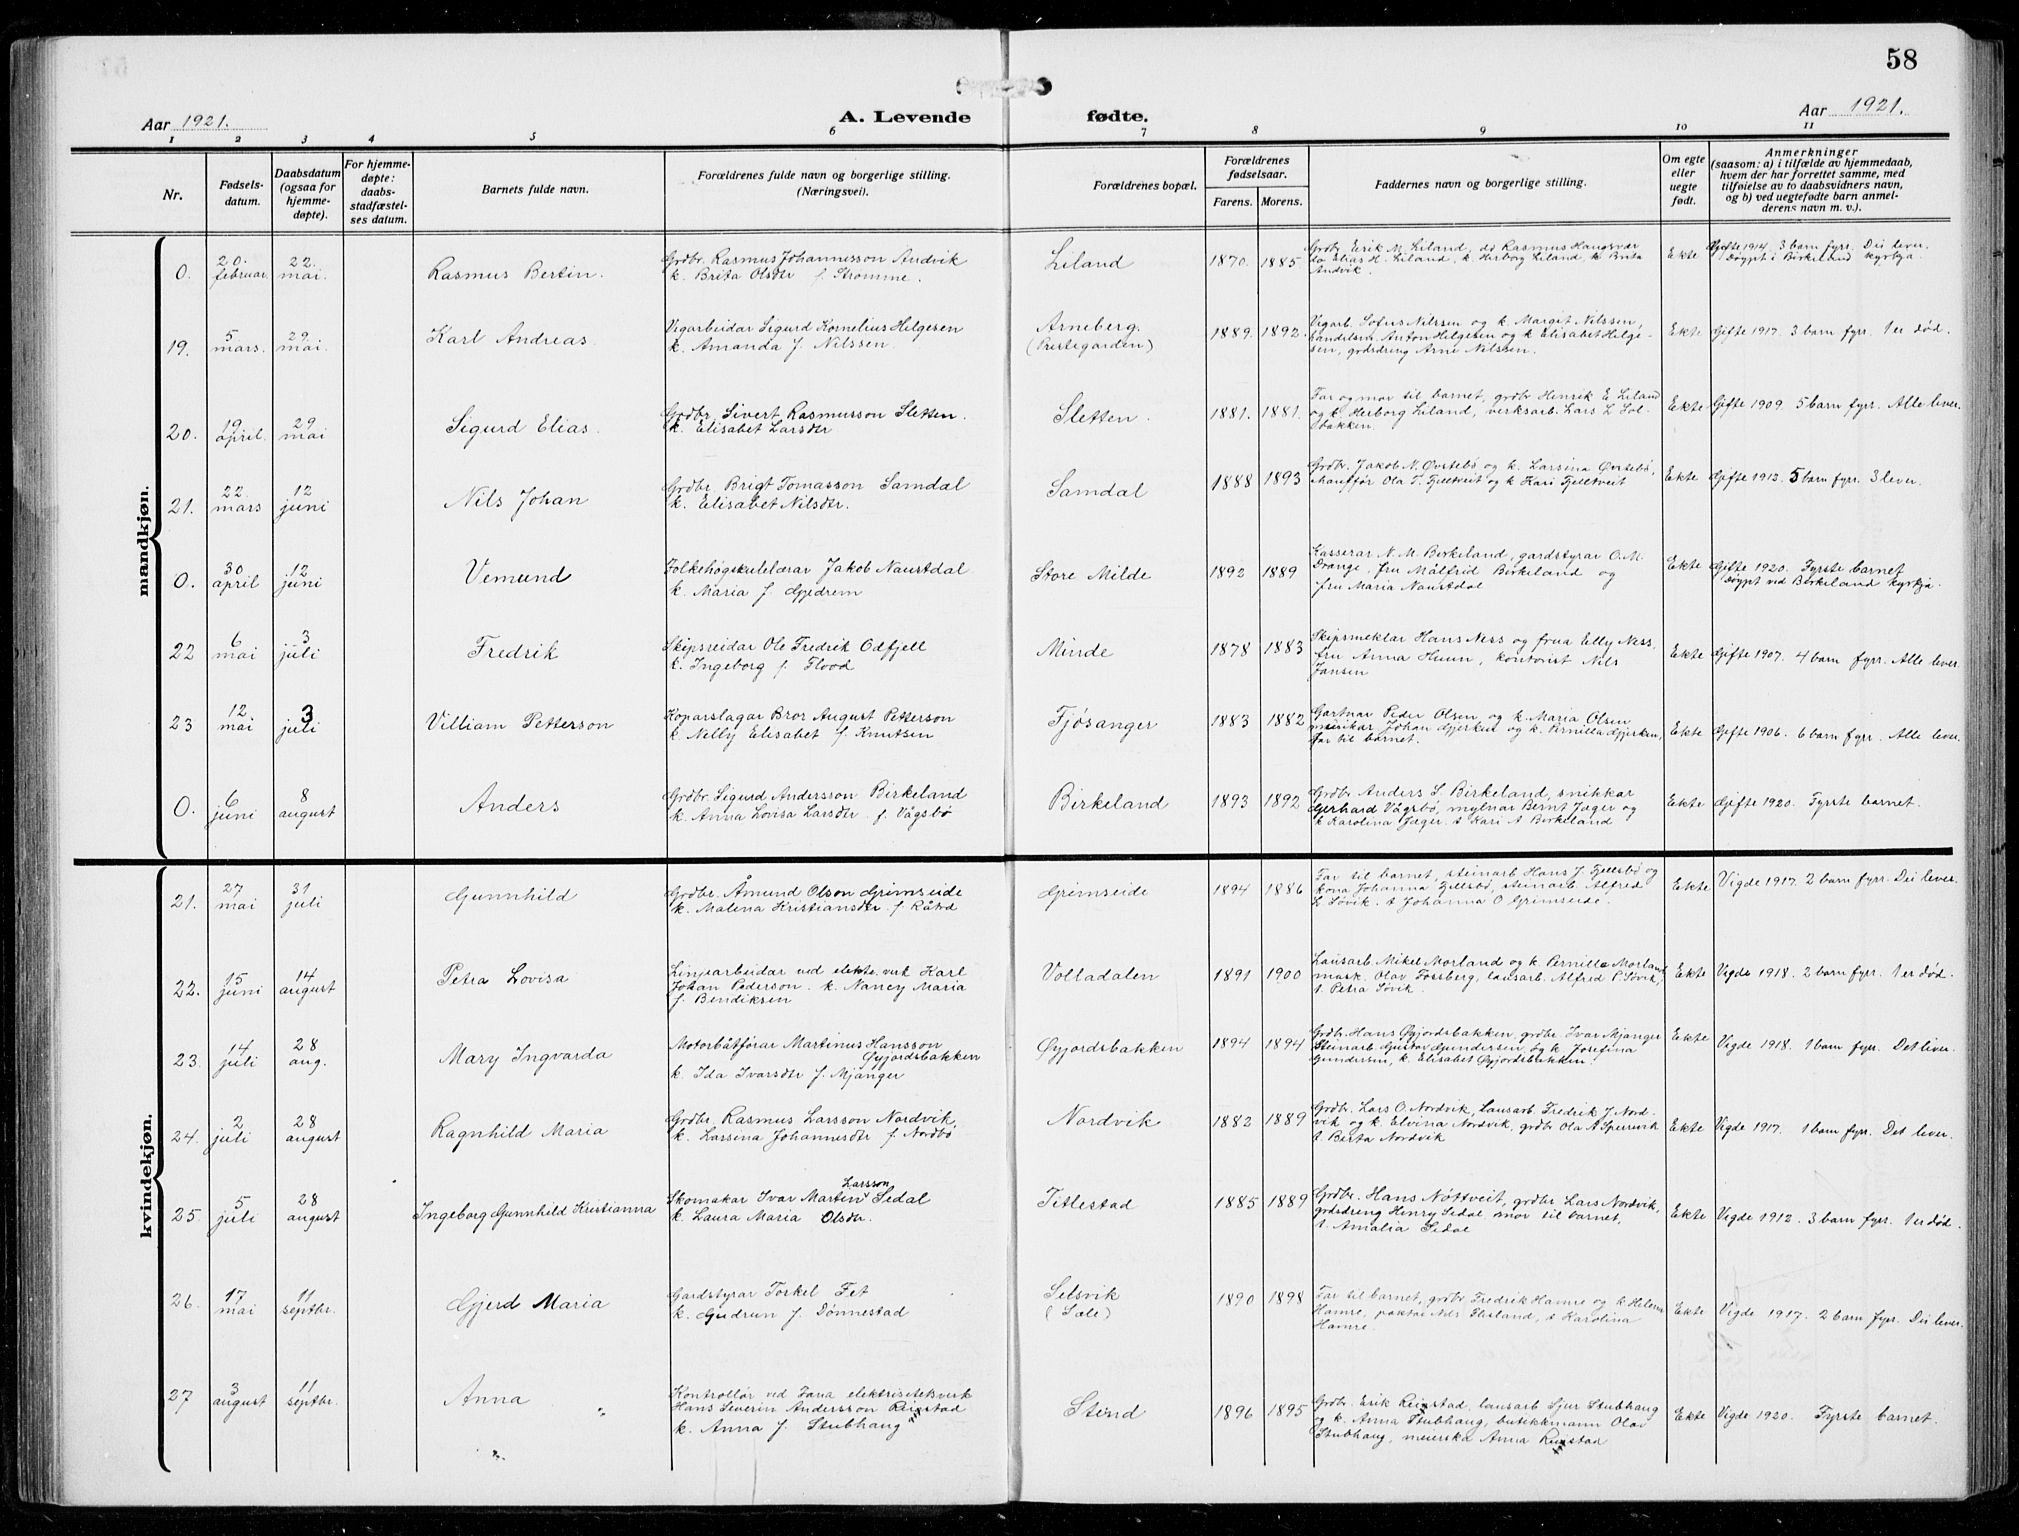 58
Aar 1921.
A. Levende fødte.
Aar 1921.
1 2 3 4 5 6 7 8 9 10 11
Nr.
Fødsels-
datum.
Daabsdatum
(ogsaa for
hjemme-
døpte).
For hjemme-
døpte:
daabs-
stadfæstel-
ses datum.
Barnets fulde navn.
Forældrenes fulde navn og borgerlige stilling.
(Næringsvei).
Forældrenes bopæl.
Forældrenes
fødselsaar.
Farens. Morens.
Faddernes navn og borgerlige stilling.
Om egte
eller
uegte
født.
Anmerkninger
(saasom: a) i tilfælde av hjemmedaab,
hvem der har forrettet samme, med
tilføielse av to daabsvidners navn,
og b) ved uegtefødte barn anmel-
derens navn m. v.).
mandkjøn.
0.
20.
februar.
22.
mai.
Rasmus Bertin.
Grdbr. Rasmus Johannesson Andvik
k. Brita Olsdtr f. Strømme.
Liland
1870. 1885
Grdbr. Erik M. Liland, do Rasmus Haugsvær
do Elias H. Liland, k. Herborg Liland, k. Brita
Andvik.
Ekte
Gifte 1914. 3 barn fyrr. Dei lever.
Døypt i Birkeland kyrkja.
19.
5
mars.
29.
mai.
Karl Andreas.
Vegarbeidar Sigurd Kornelius Helgesen
k. Amanda f. Nilssen.
Arneberg.
(Prestegarden)
1889. 1892.
Vegarb. Sofus Nilssen og k. Margit Nilssen,
handelsm. Anton Helgesen og k Elisabet Helge-
sen, grdsdreng Arne Nilssen.
Ekte
Gifte 1917. 3 barn fyrr. 1 er død.
20.
19
april.
29
mai
Sigurd Elias.
Grdbr. Sivert Rasmusson Sletten.
k. Elisabet Larsdtr
Sletten
1881. 1881.
Far og mor til barnet, grdbr Henrik E. Liland
og k. Herborg Liland, verksarb. Lars L. Sol-
bakken.
Ekte
Gifte 1909. 5 barn fyrr. Alle lever.
21.
22.
mars
12
juni
Nils Johan
Grdbr Brigt Tomasson Samdal
k. Elisabet Nilsdtr.
Samdal
1888 1893
Grdbr. Jakob N. Øvstebø og k. Larsina Øvstebø,
chaufför Ola T. Tjeltveit og k Kari Fjelltveit
Ekte
Gifte 1912. 5 barn fyrr. 3 lever.
0.
30
april
12
juni
Vemund
Folkehøgskulelærar Jakob Naustdal
k. Maria f. Gjedrem
Store Milde
1892 1889
Kasserar N. M. Birkeland, gardstyrar O. M.
Drange, fru Målfrid Birkeland og
fru Maria Naustdal
Ekte
Gifte 1920. Fyrste barnet
Døypt ved Birkeland kyrkja.
22
6
mai
3
juli
Fredrik
Skipsreidar Ole Fredrik Odfjell
k. Ingeborg f. Flood
Minde
1878 1883
Skipsmeklar Hans Ness og frua Elly Ness,
fru Anna Huun, kontorist Nils
Jansen
Ekte
Gifte 1907. 4 barn fyrr. Alle lever.
23
12
mai
3
juli
Villiam Petterson
Koparslagar Bror August Petterson
k. Nelly Elisabet f. Knutsen
Fjøsanger
1883 1882
Gartnar Peder Olsen og k. Maria Olsen
Johan Gjerken og k. Pernilla Gjerken,
far til barnet.
Ekte
Gifte 1906. 6 barn fyrr. Alle lever.
0.
6
juni
8
august
Anders
Grdbr. Sigurd Andersson Birkeland
k. Anna Lovisa Larsdtr. f. Vågsbø
Birkeland
1893 1892
Grdbr. Anders S. Birkeland, snikkar
Gerhard Vågsbø, mylnar Bernt Jæger og
k Karolina Jæger. t Kari A Birkeland
Ekte
Gifte 1920. Fyrste barnet.
kvindekjøn.
21.
27
mai
31
juli
Gunnhild
Grdbr. Åmund Olson Grimseide
k. Malena Kristiansdtr f. Råtad
Grimseide
1894 1886
Far til barnet, steinarb Hans J. Fjellsbø og
kona Johanna Fjellsbø, steinarb. Alfred
L. Søvik. t Johanna O Grimseide.
Ekte
Vigde 1917. 2 barn fyrr. Dei lever.
22.
15
juni
14
august
Petra Lovisa
Linjearbeidar ved elektr. verk Karl
Johan Pederson. k. Nancy Maria
f. Bendiksen
Volladalen
1891 1900
Lausarb. Mikel Morland og k. Pernilla Morland,
mask. Olav Forsberg, lausarb. Alfred P. Søvik,
t. Petra Søvik.
Ekte
Vigde 1918. 2 barn fyrr. 1 er død.
23.
14
juli
28
aug.
Mary Ingvarda
Motorbåtførar Martinus Hansson
Øyjordsbakken
k. Ida Ivarsdtr f. Mjånger
Øyjordsbakken
1894 1894
Grdbr. Hans Øyjordsbakken, grdbr Ivar Mjånger
Steinarb. Gustav Gundersen og k. Josefina
Gundersen, k. Elisabet Øyjordsbakken.
Ekte
Vigde 1918. 1 barn fyrr. Det lever.
24.
2
juli
28
august
Ragnhild Maria
Grdbr Rasmus Larsson Nordvik.
k. Larsena Johannesdtr f. Nordbø
Nordvik
1882 1889
Grdbr. Lars O. Nordvik, lausarb. Fredrik J Nord-
vik og k. Elvina Nordvik, grdbr Ola A Sperrevik
t. Berta Nordvik
Ekte
Vigde 1917. 1 barn fyrr. Det lever.
25.
5
juli
28
august
Ingeborg Gunnhild Kristianna
Larsson
Skomakar Ivar Martin Sedal
k. Laura Maria Olsdtr.
Titlestad
1885 1889
Grdbr. Hans Nøttveit, grdbr Lars Nordvik,
grdsdreng Henry Sedal. mor til barnet,
t. Amalia Sedal
Ekte
Vigde 1912. 3 barn fyrr. 1 er død.
26.
17
mai
11
septbr.
Gjerd Maria
Gardstyrar Torkel Fet
k. Gudrun f. Dønnestad
Selsvik
(Sæle)
1890 1898
Far til barnet, grdbr Fredrik Hamre og k. Helena
Hamre, Nils Eksland, t Karolina
Hamre.
Ekte
Vigde 1917. 2 barn fyrr. Dei lever.
27
3
august
11
septbr.
Anna
Kontrollør ved Fana elektrisitetsverk
Hans Severin Andersson Reistad
k. Anna f. Stubhaug
Stend
1896 1895
Grdbr. Erik Reistad, lausarb Sjur Stubhaug
og k. Anna Stubhaug, butikkmann Olav
Stubhaug, meierska Anna Reistad
Ekte
Vigde 1920. Fyrste barnet.